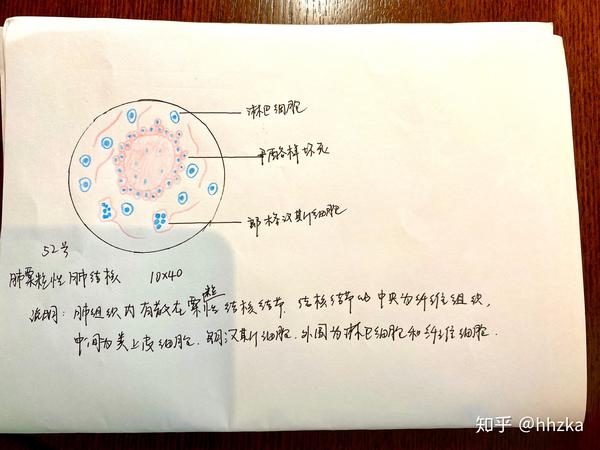 淋巴细胞
干酪样坏死
郎格汉斯细胞
52号
肺粟粒性肺结核 10×40
说明：肺组织内有散在粟粒性结核结节，结核结节的中央为纤维组织，
中间为类上皮细胞、郎汉斯细胞，外围为淋巴细胞和纤维细胞．
知乎 @hhzka